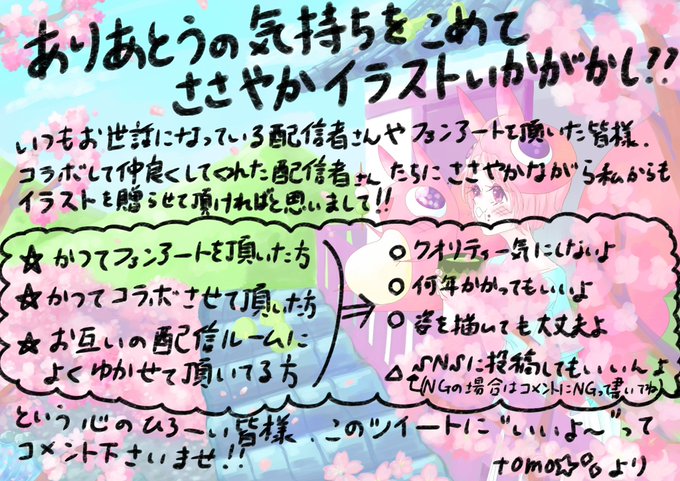 ありあとうの気持ちをこめて
ささやかイラストいかがかし!!
いつもお世話になっている配信者さんやファンアートを頂いた皆様、
コラボして仲良くしてくれた配信者さんたちにささやかながら私からも
イラストを贈らせて頂ければと思いまして!!
☆ かつてファンアートを頂いた方
☆ かつてコラボさせて頂いた方
☆ お互いの配信ルームに
よくゆかせて頂いてる方
⇒
○ クオリティー気にしないよ
○ 何年かかってもいいよ
○ 姿を描いても大丈夫よ
△ SNSに投稿してもいいんよ
↑(NGの場合はコメントにNGって書いてね)
という心のひろーい皆様、このツイートに"いいよ〜"って
コメント下さいませ!!
tomo☆°。より